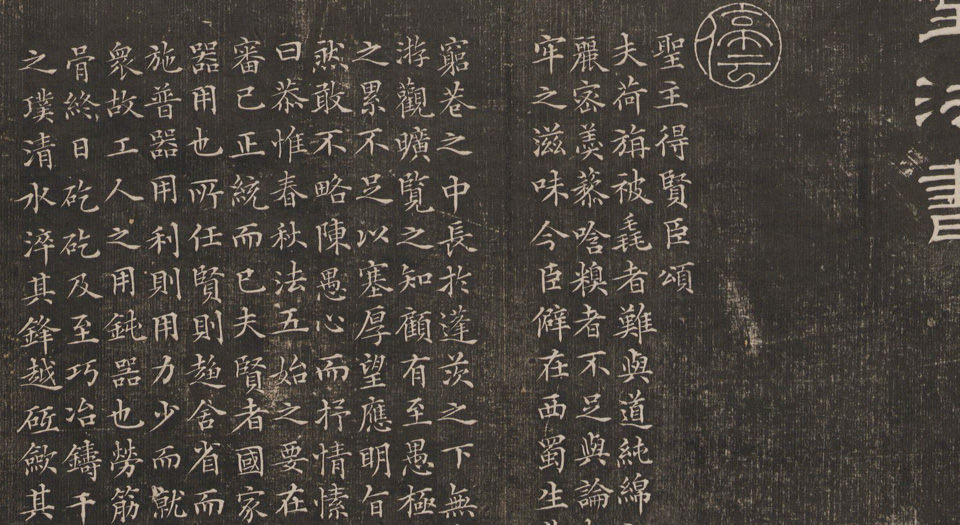 法書
停云
聖主得賢臣頌
夫荷旃被毳者難與道純綿
麗密羹藜唅糗者不足與論
牢之滋味今臣僻在西蜀生
窮巷之中長於蓬茨之下無
游觀曠覧之知顧有至愚極
之累不足以塞厚望應明旨
然敢不略陳愚心而抒情愫
曰恭惟春秋法五始之要在
審己正統而已夫賢者國家
器用也所任賢則趍舍省而
施普器用利則用力少而就
衆故工人之用鈍器也勞筋
骨終日矻矻及至巧冶鑄干
之璞清水淬其鋒越砥歛其